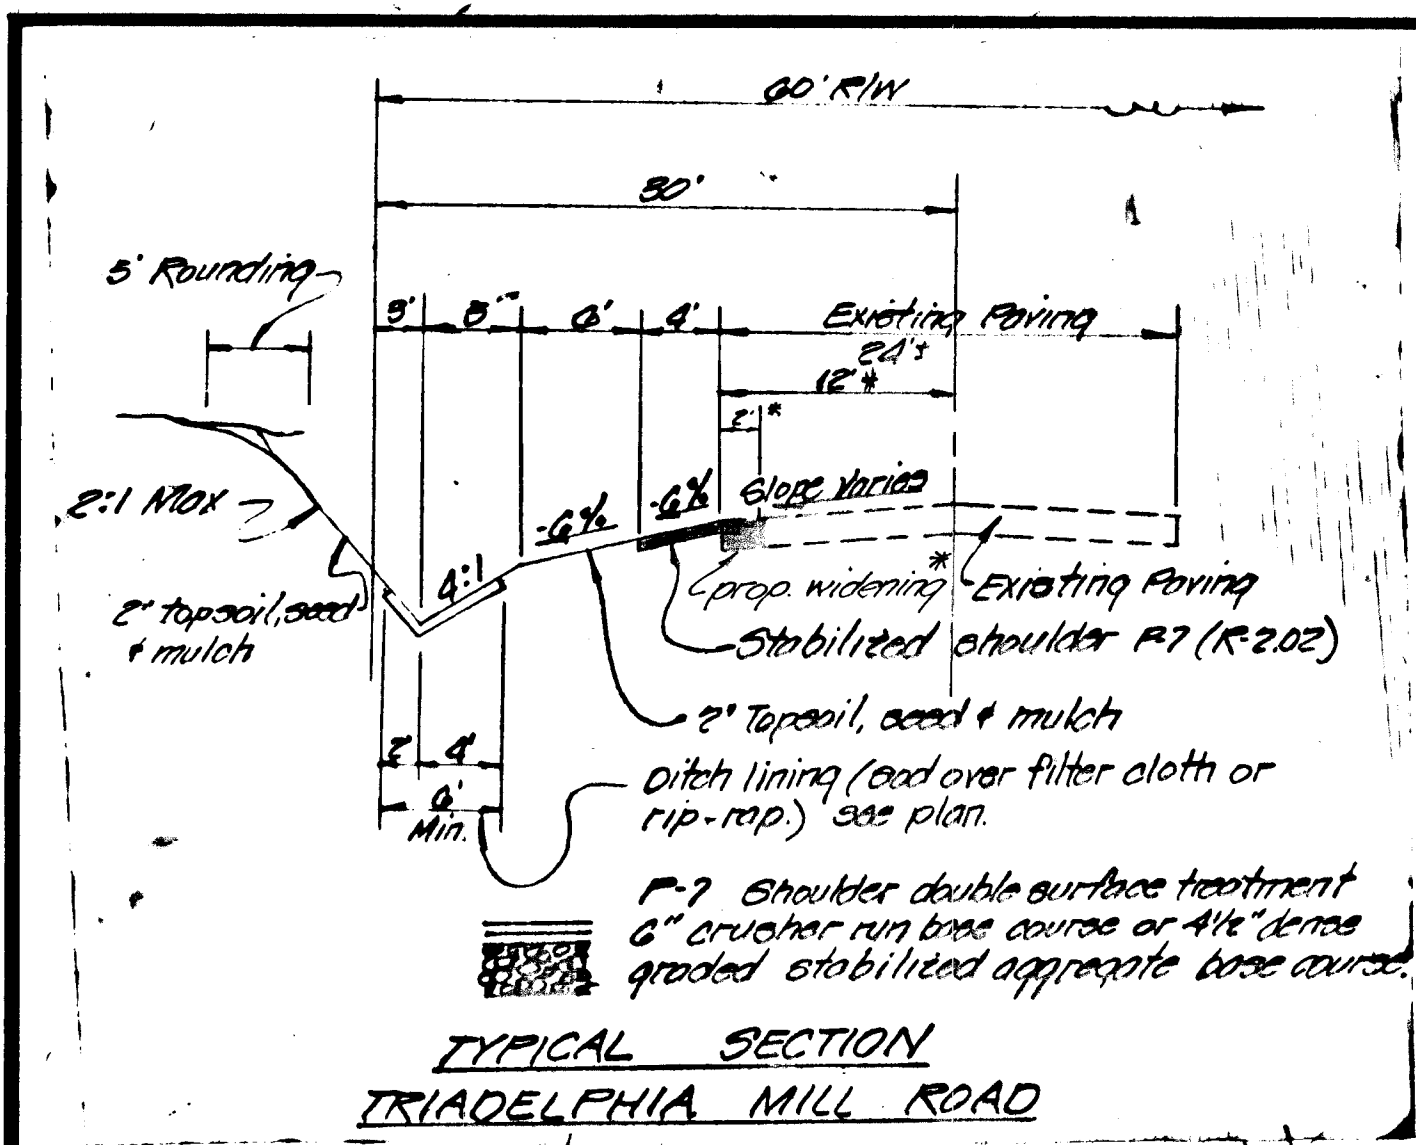 60' R/W
30'
5' Rounding
3' 5' 6' 4' Existing Paving
24'±
12' *
2' *
2:1 Max
-6% -6% Slope varies
4:1
prop. widening * Existing Paving
2" topsoil, seed
& mulch
Stabilized shoulder P-7 (R-2.02)
2" Topsoil, seed & mulch
2' 4'
6'
Min.
Ditch lining (sod over filter cloth or
rip-rap.) see plan.
P-7 Shoulder double surface treatment
6" crusher run base course or 4½" dense
graded stabilized aggregate base course.
TYPICAL SECTION
TRIADELPHIA MILL ROAD